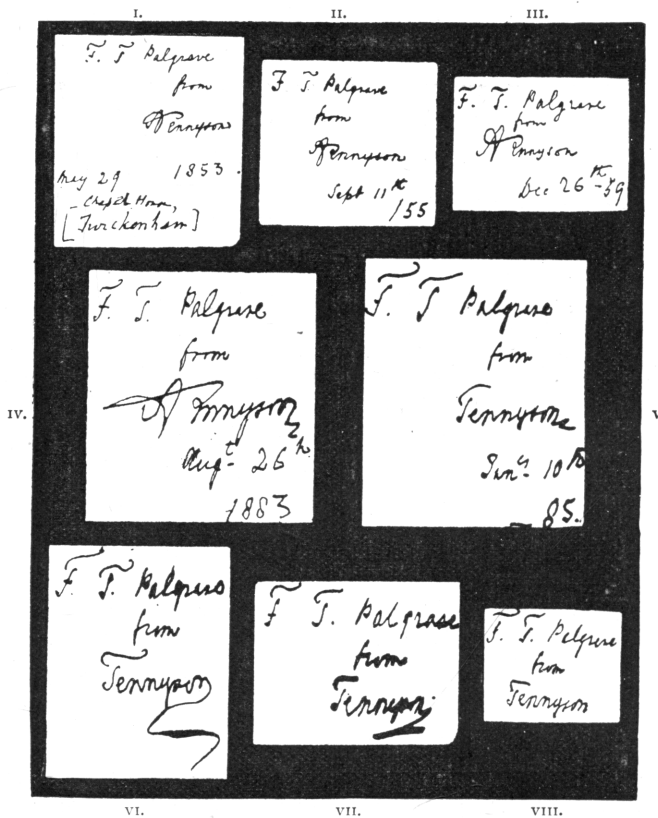 I.
II.
III.
F. T Palgrave
from
ATennyson
May 29 1853.
Chapel House,
[Twickenham]
F T Palgrave
from
ATennyson
Sept 11th
/55
F. T. Palgrave
from
ATennyson
Dec 26th -59
IV.
V
F. T. Palgrave
from
ATennyson
Augt 26th
1883
F. T Palgrave
from
Tennyson
10th
85.
F. T. Palgrave
from
Tennyson
F T. Palgrave
from
Tennyson
F. T. Palgrave
from
Tennyson
VI.
VII.
VIII.